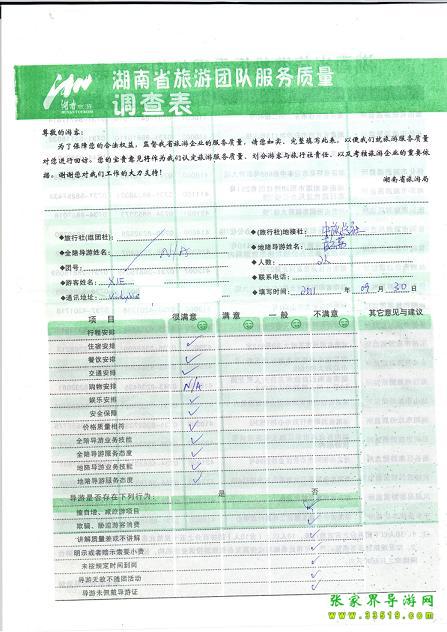 湖南省旅游团队服务质量
调查表
尊敬的游客:
为了保障您的合法权益,监督我省旅游企业的服务质量,请您如实、完整填写此表,以便我们就旅游服务质量
对您进行回访。您的宝贵意见将作为我们认定旅游服务质量、划分游客与旅行社责任、以及考核旅游企业的重要依
据。谢谢您对我们工作的大力支持!
湖南省旅游局
◆旅行社(组团社):
◆(旅行社)地接社:
◆全陪导游姓名: N/A
◆地陪导游姓名:
◆团号:
◆人数:
◆游客姓名: XIE
◆联系电话:
◆通讯地址:
◆填写时间: 2011 年 09 月 30 日
项 目 很满意 满 意 一 般 不满意 其它意见与建议
行程安排
住宿安排
餐饮安排
交通安排
购物安排 N/A
娱乐安排
安全保障
价格质量相符
全陪导游业务技能
全陪导游服务态度
地陪导游业务技能
地陪导游服务态度
导游是否存在下列行为: 是 否
擅自增、减旅游项目
欺骗、胁迫游客消费
讲解质量差或不讲解
明示或者暗示索要小费
未按规定时间到岗
导游无故不随团活动
导游未佩戴导游证
张家界导游网
www.33519.com